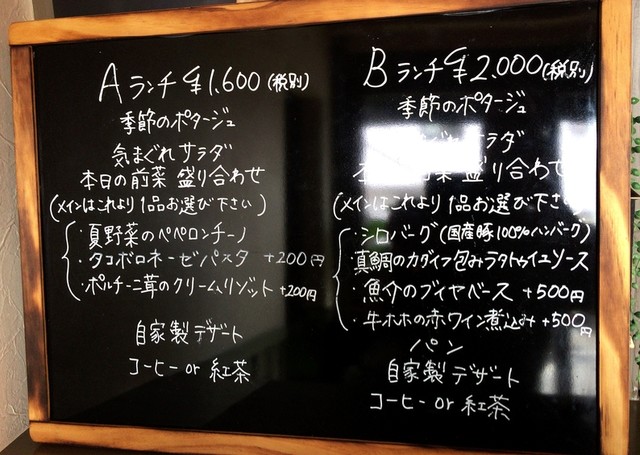 Aランチ ¥1.600(税別)
季節のポタージュ
気まぐれサラダ
本日の前菜 盛り合わせ
(メインはこれより 1品お選び下さい)
・夏野菜のペペロンチーノ
・タコボロネーゼパスタ +200円
・ポルチーニ茸のクリームリゾット +200円
自家製デザート
コーヒー or 紅茶
Bランチ ¥2.000(税別)
季節のポタージュ
ぐれサラダ
本 前菜 盛り合わせ
(メインはこれより 1品お選び下さい)
・シロバーグ(国産豚100%ハンバーグ)
・真鯛のカダイフ包みラタトゥイユソース
・魚介のブイヤベース +500円
・牛ホホの赤ワイン煮込み +500円
パン
自家製デザート
コーヒー or 紅茶